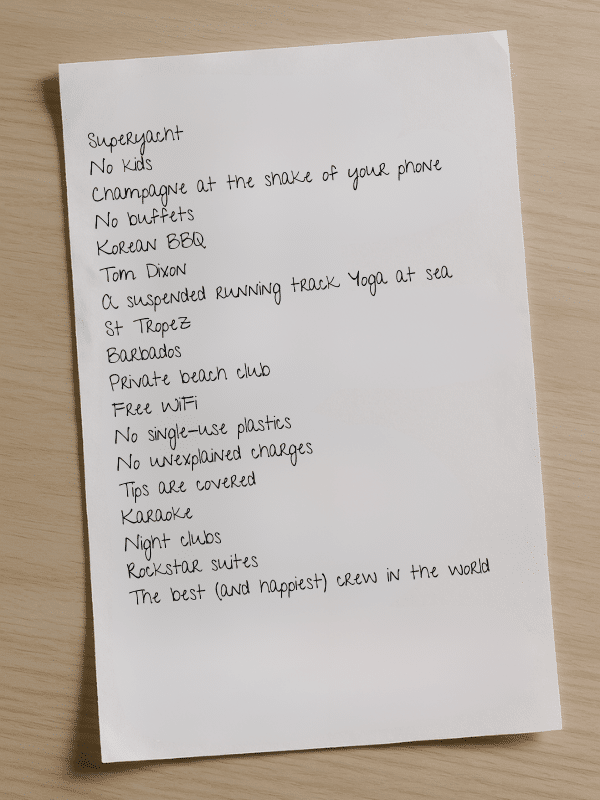 Superyacht
No kids
Champagne at the shake of your phone
No buffets
Korean BBQ
Tom Dixon
a suspended running track Yoga at sea
St Tropez
Barbados
Private beach club
Free WiFi
No single-use plastics
No unexplained charges
Tips are covered
Karaoke
Night clubs
Rockstar suites
The best (and happiest) crew in the world